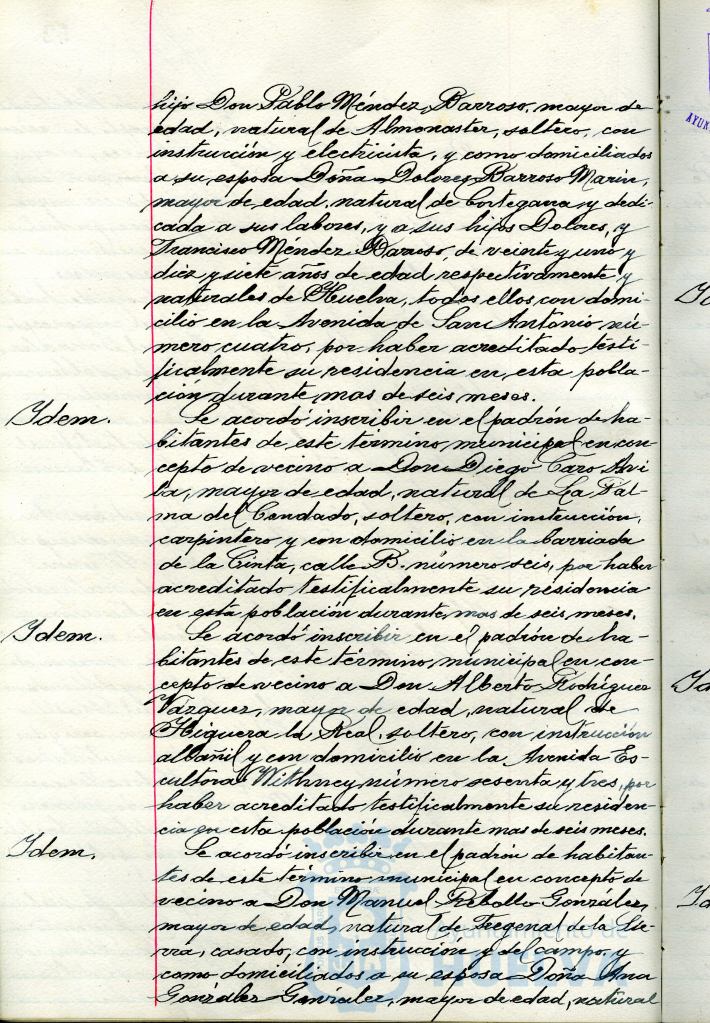 hijo Don Pablo Méndez Barroso, mayor de
edad, natural de Almonaster, soltero, con
instrucción y electricista, y como domiciliados
a su esposa Doña Dolores Barroso Marín,
mayor de edad, natural de Cortegana y dedi-
cada a sus labores, y a sus hijos Dolores, y
Francisco Méndez Barroso, de veinte y uno y
diez y siete años de edad respectivamente y
naturales de Huelva, todos ellos con domi-
cilio en la Avenida de San Antonio nú-
mero cuatro, por haber acreditado testi-
ficalmente su residencia en esta pobla-
ción durante mas de seis meses.
Idem. Se acordó inscribir en el padrón de ha-
bitantes de este termino municipal en con-
cepto de vecino a Don Diego Caro Avi
la, mayor de edad, natural de La Pal-
ma del Condado, soltero, con instrucción,
carpintero y con domicilio en la barriada
de la Cinta, calle B. número seis, por haber
acreditado testificalmente su residencia
en esta población durante mas de seis meses.
Idem. Se acordó inscribir en el padrón de ha-
bitantes de este término municipal en con-
cepto de vecino a Don Alberto Rodríguez
Vázquez, mayor de edad, natural de
Higuera la Real, soltero, con instrucción
albañil y con domicilio en la Avenida Es-
cultora Withney número sesenta y tres, por
haber acreditado testificalmente su residen-
cia en esta población durante mas de seis meses.
Idem. Se acordó inscribir en el padrón de habitan-
tes de este término municipal en concepto de
vecino a Don Manuel Rebollo González,
mayor de edad, natural de Fregenal de la Sie-
rra, casado, con instrucción y del campo, y
como domiciliados a su esposa Doña Ana
González González, mayor de edad, natural
HUELVA